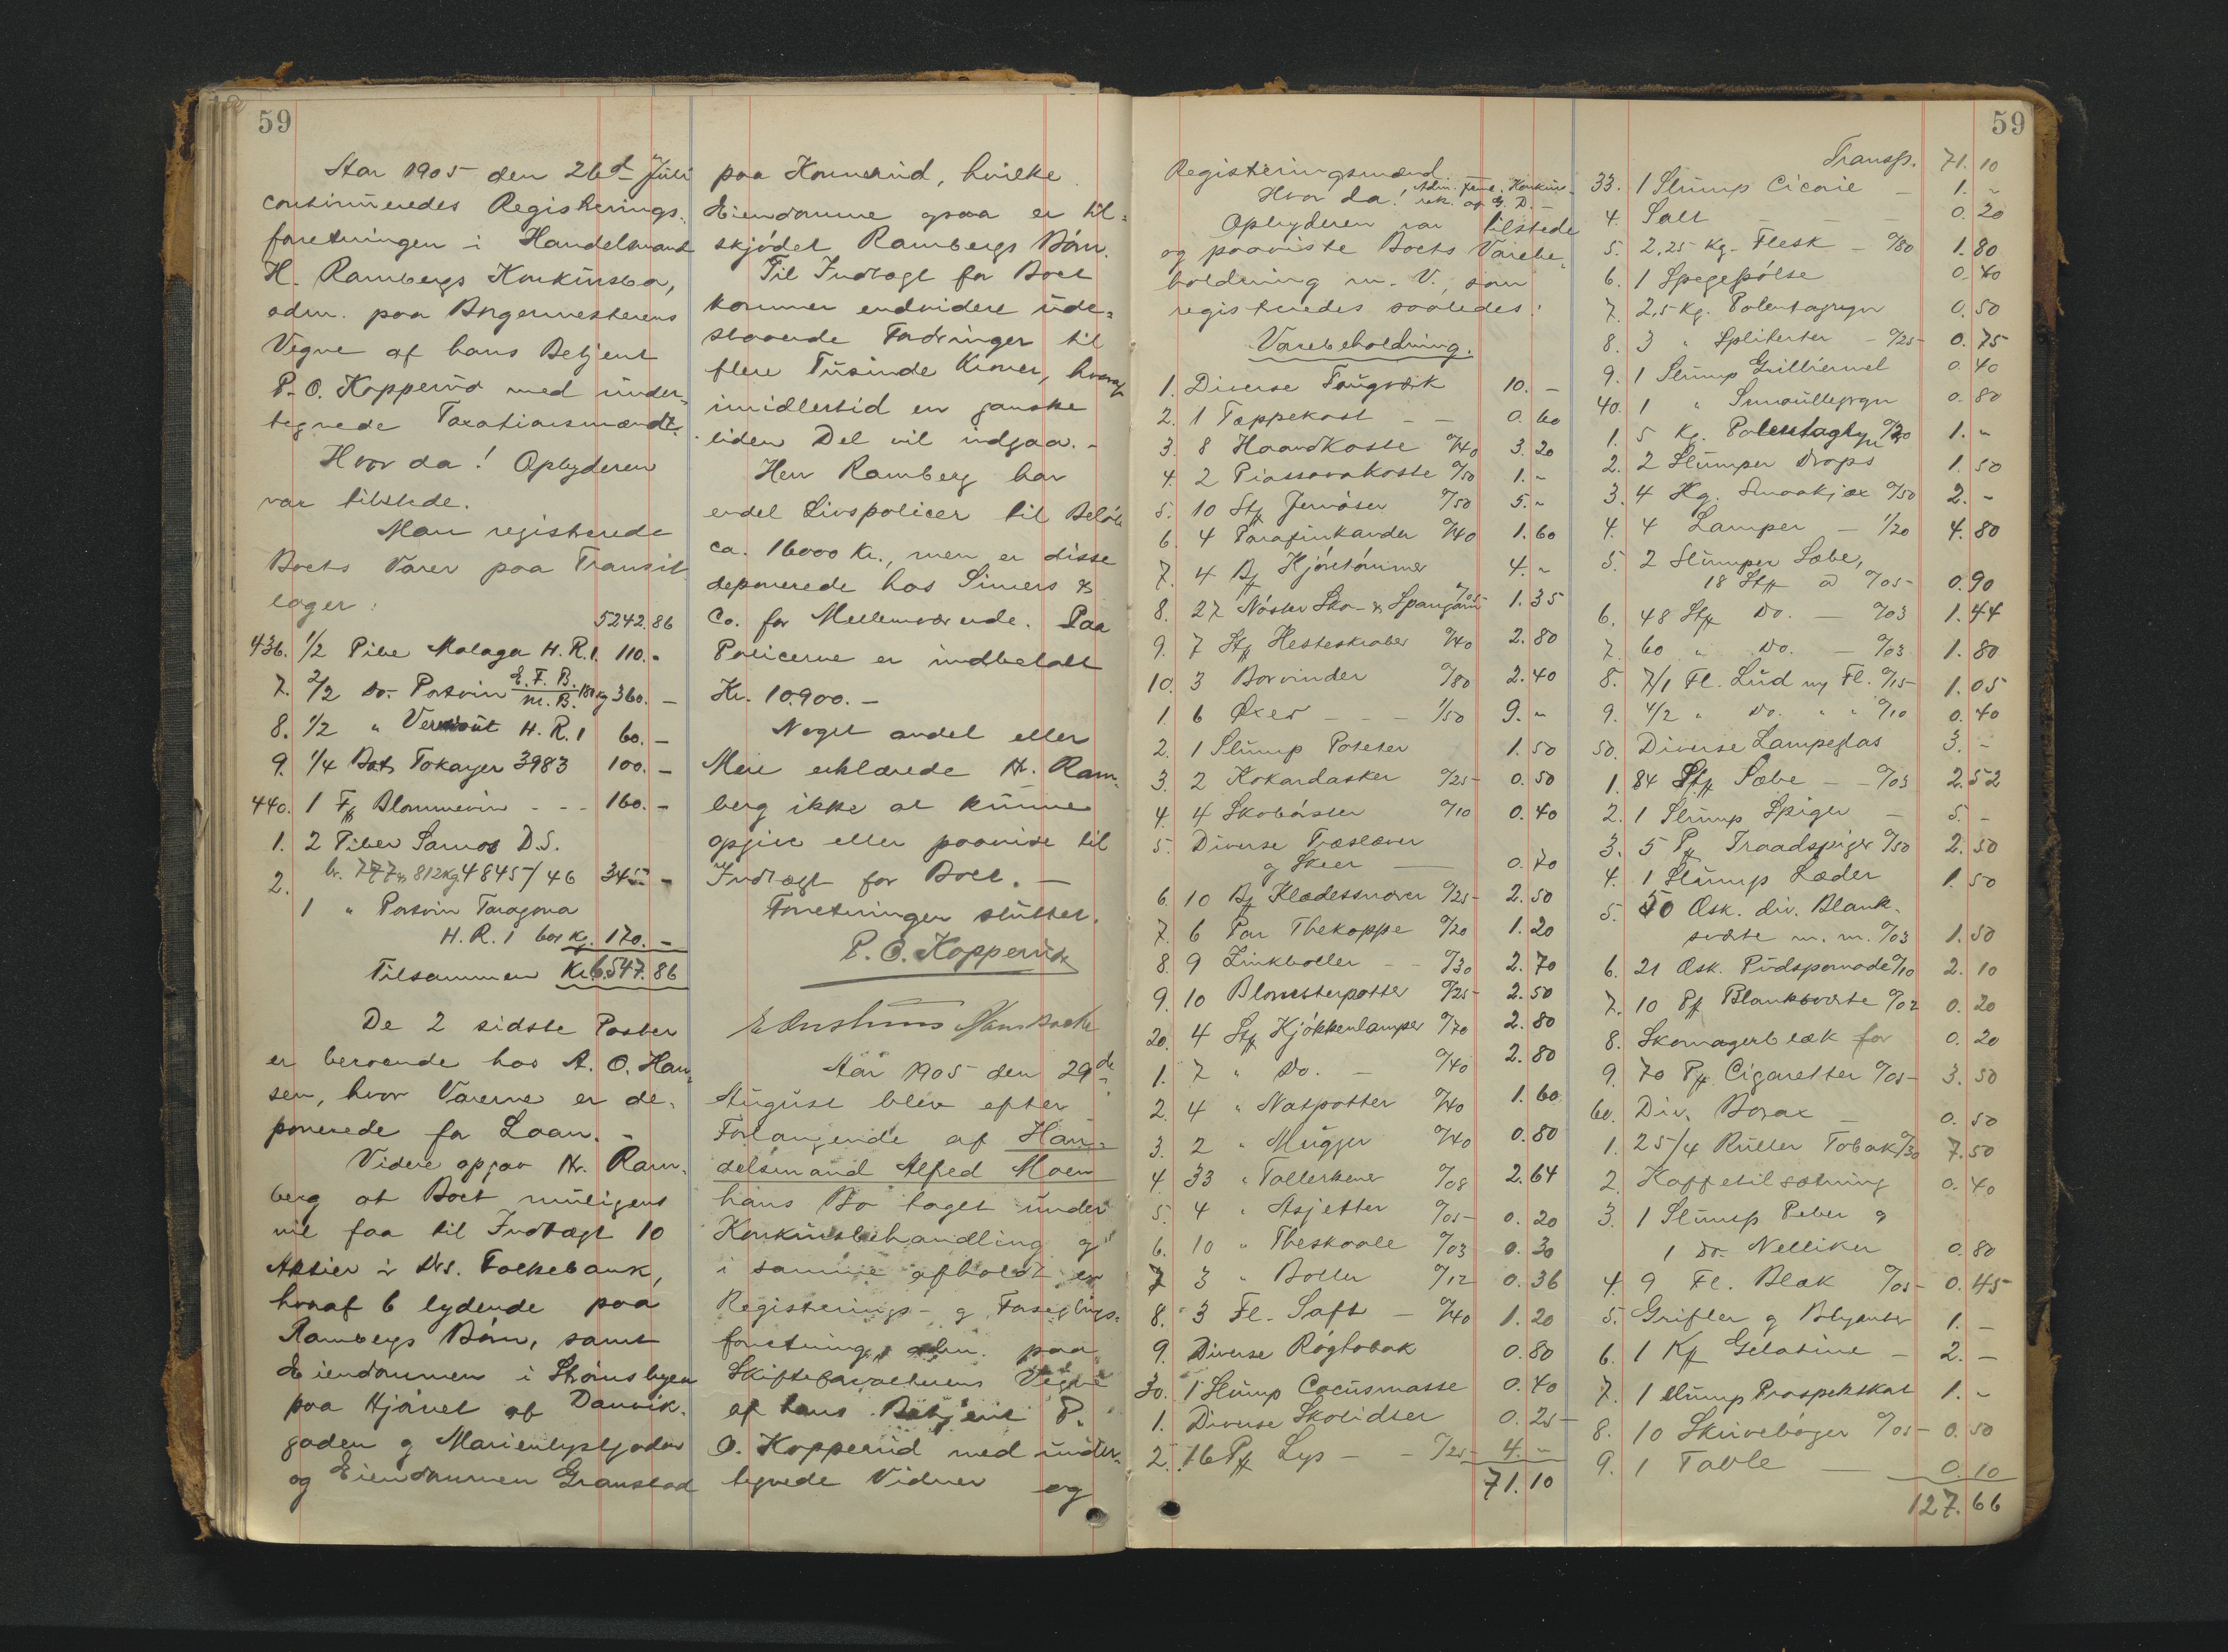 59
Aar 1905 den 26de Juli
continueredes Registrerings-
forretningen i Handelsmand
H. Rambergs Konkursbo,
adm. paa Borgermesterens
Vegne af hans Betjent
P. O. Kopperud med under-
tegnede Taxationsmænd.
Hvor da! Opbyderen
var tilstede.
Man registerede
Boets Varer paa Transit
lager:
5242.86
436. 1/2 Pibe Malaga H.R.1. 110.-
7. 2/2 do. Portvin E.F.B./M.B. 180 kg 360.-
8. 1/2 " Vermout H.R.1 60.-
9. 1/4 Bot Tokayer 3983 100.-
440. 1 Fj Blommevin - - - 160.-
1. 2 Piber Samos D.S.
br. 777 & 812 kg 4845/46 345.-
2.
1 " Portvin Taragona
H.R.1 601 kg. 170.-
Tilsammen Kr. 6.547.86
De 2 sidste Poster
er beroende hos A. O. Han-
sen, hvor Varerne er de-
ponerede for Laan. -
Videre opgav Hr. Ram-
berg at Boet muligens
vil faa til Indtægt 10
Aktier i Drs. Folkebank,
hvoraf 6 lydende paa
Rambergs Børn, samt
Eiendommen i Strømsbyen
paa Hjørnet af Danvik-
gaden g Marienlystgaden
og Eiendommen Granstad
paa Konnerud, hvilke
Eiendomme ogsaa er til-
skjødet Rambergs Børn.
Til Indtægt for Boet
kommer endvidere ude-
staaende Fordringer til
flere Tusinde Kroner, hvoraf
imidlertid en ganske
liden Del vil indgaa. -
Herr Ramberg har
endel Livspolicer til Beløb
ca. 16000 Kr., men er disse
deponerede hos Simers &
Co. for Mellemværende. Paa
Policerne er indbetalt
Kr. 10.900.-
Noget andet eller
Mere erklærede Hr. Ram-
berg ikke at kunne
opgive eller paavise til
Indtægt for Boet. -
Forretningen sluttet.
P. O. Kopperud
Hans Bache
Aar 1905 den 29de
August blev efter
Forlangende af Han-
delsmand Alfred Moen
hans Bo taget under
Konkursbehandling og
i samme afholdt en
Registerings- g Forseglings-
forretning, adm. paa
Skifteforvalterens Vegne
af hans Betjent P.
O. Kopperud med under-
tegnede Vidner og
59
Registeringsmænd
Hvor da! Adm. fung. Konkurs-
rek. af G. D. -
Opbyderen var tilstede
og paaviste Boets Varebe-
holdning m. V., som
registeredes saaledes:
Varebeholdning.
1. Diverse Taugværk 10. -
2. 1 Tappekost - - 0.60
3. 8 Haandkoste %40 3.20
4. 2 Piassavakoste %50 1.-
5. 10 Stk Jernøser %50 5.-
6. 4 Parafinkander %40 1.60
7. 4 Bj Hjøretømmer 4.-
8. 27 Nøster Sko- & Spangarn %05 1.35
9. 7 Stk Hesteskraber %40 2.80
10. 3 Borvinder %80 2.40
1. 6 Øxer - - - 1/50 9.-
2. 1 Slump Poteter 1.50
3. 2 Kokardasker %25 0.50
4. 4 Skobørster %10 0.40
5. Diverse Træslæver
g Skeer — 0.70
6. 10 Bj Klædessnorer %25 2.50
7. 6 Par Thekoppe %20 1.20
8. 9 Zinkboller - - %30 2.70
9. 10 Blomsterpotter %25 2.50
20. 4 Stk Kjøkkenlamper %70 2.80
1. 7 " Do. - %40 2.80
2. 4 " Natpotter %40 1.60
3. 2 " Mugger %40 0.80
4. 33 " Tallerkener %08 2.64
5. 4 " Asjetter %05 0.20
6. 10 " Theskaale %03 0.30
7. 3 " Boller %12 0.36
8. 3 Fl. Saft - %40 1.20
9. Diverse Røgtobak 0.80
30. 1 Slump Cocusmasse 0.40
1. Diverse Skolidser 0.25
2. 16 Pk Lys - - %25 4.-
71.10
59
Transp. 71.10
33. 1 Slump Cicorie - 1.-
4. Salt - - - 0.20
5. 2,25 Kg. Flesk - %80 1.80
6. 1 Spegepølse 0.40
7. 2,5 Kg. Polentagryn 0.50
8. 3 " Spliterter - %25 0.75
9. 1 Slump Grillermel 0.40
40. 1 " Smaallegryn 0.80
1. 5 Kg. Polentagryn %20 1.-
2. 2 Slumper Drops 1.50
3. 4 Kg. Smaakjæx %50 2.-
4. 4 Lamper - 1/20 4.80
5. 2 Slumper Sæbe,
18 Stk a %05 0.90
6. 48 Stk Do. - %03 1.44
7. 60 " Do. - %03 1.80
8. 7/1 Fl. Lud ny Fl. %15 1.05
9. 4/2 " Do. " " %10 0.40
50. Diverse Lampeglas 3.-
1. 84 Stk Sæbe - - %03 2.52
2. 1 Slump Spiger - 5.-
3. 5 Pk Traadspiger %50 2.50
4. 1 Slump Læder 1.50
5. 50 Æsk. div. Blank-
sværte m. m. %03 1.50
6. 21 Æsk. Pudspomade %10 2.10
7. 10 Pk Blanksværte %02 0.20
8. Skomagerbeæk for 0.20
9. 70 Pk Cigaretter %05 3.50
60. Div. Borax - 0.50
1. 25/4 Ruller Tobak %30 7.50
2. Kaffetilsætning 0.40
3. 1 Slump Peber g
1 do. Nelliker 0.80
4. 9 Fl. Blæk %05 0.45
5. Grifler g Blyanter 1.-
6. 1 Kk Gelatine - 2.-
7. 1 slump Prospektskort 1.-
8. 10 Skrivebøger %05 0.50
9. 1 Tavle — 0.10
127.66